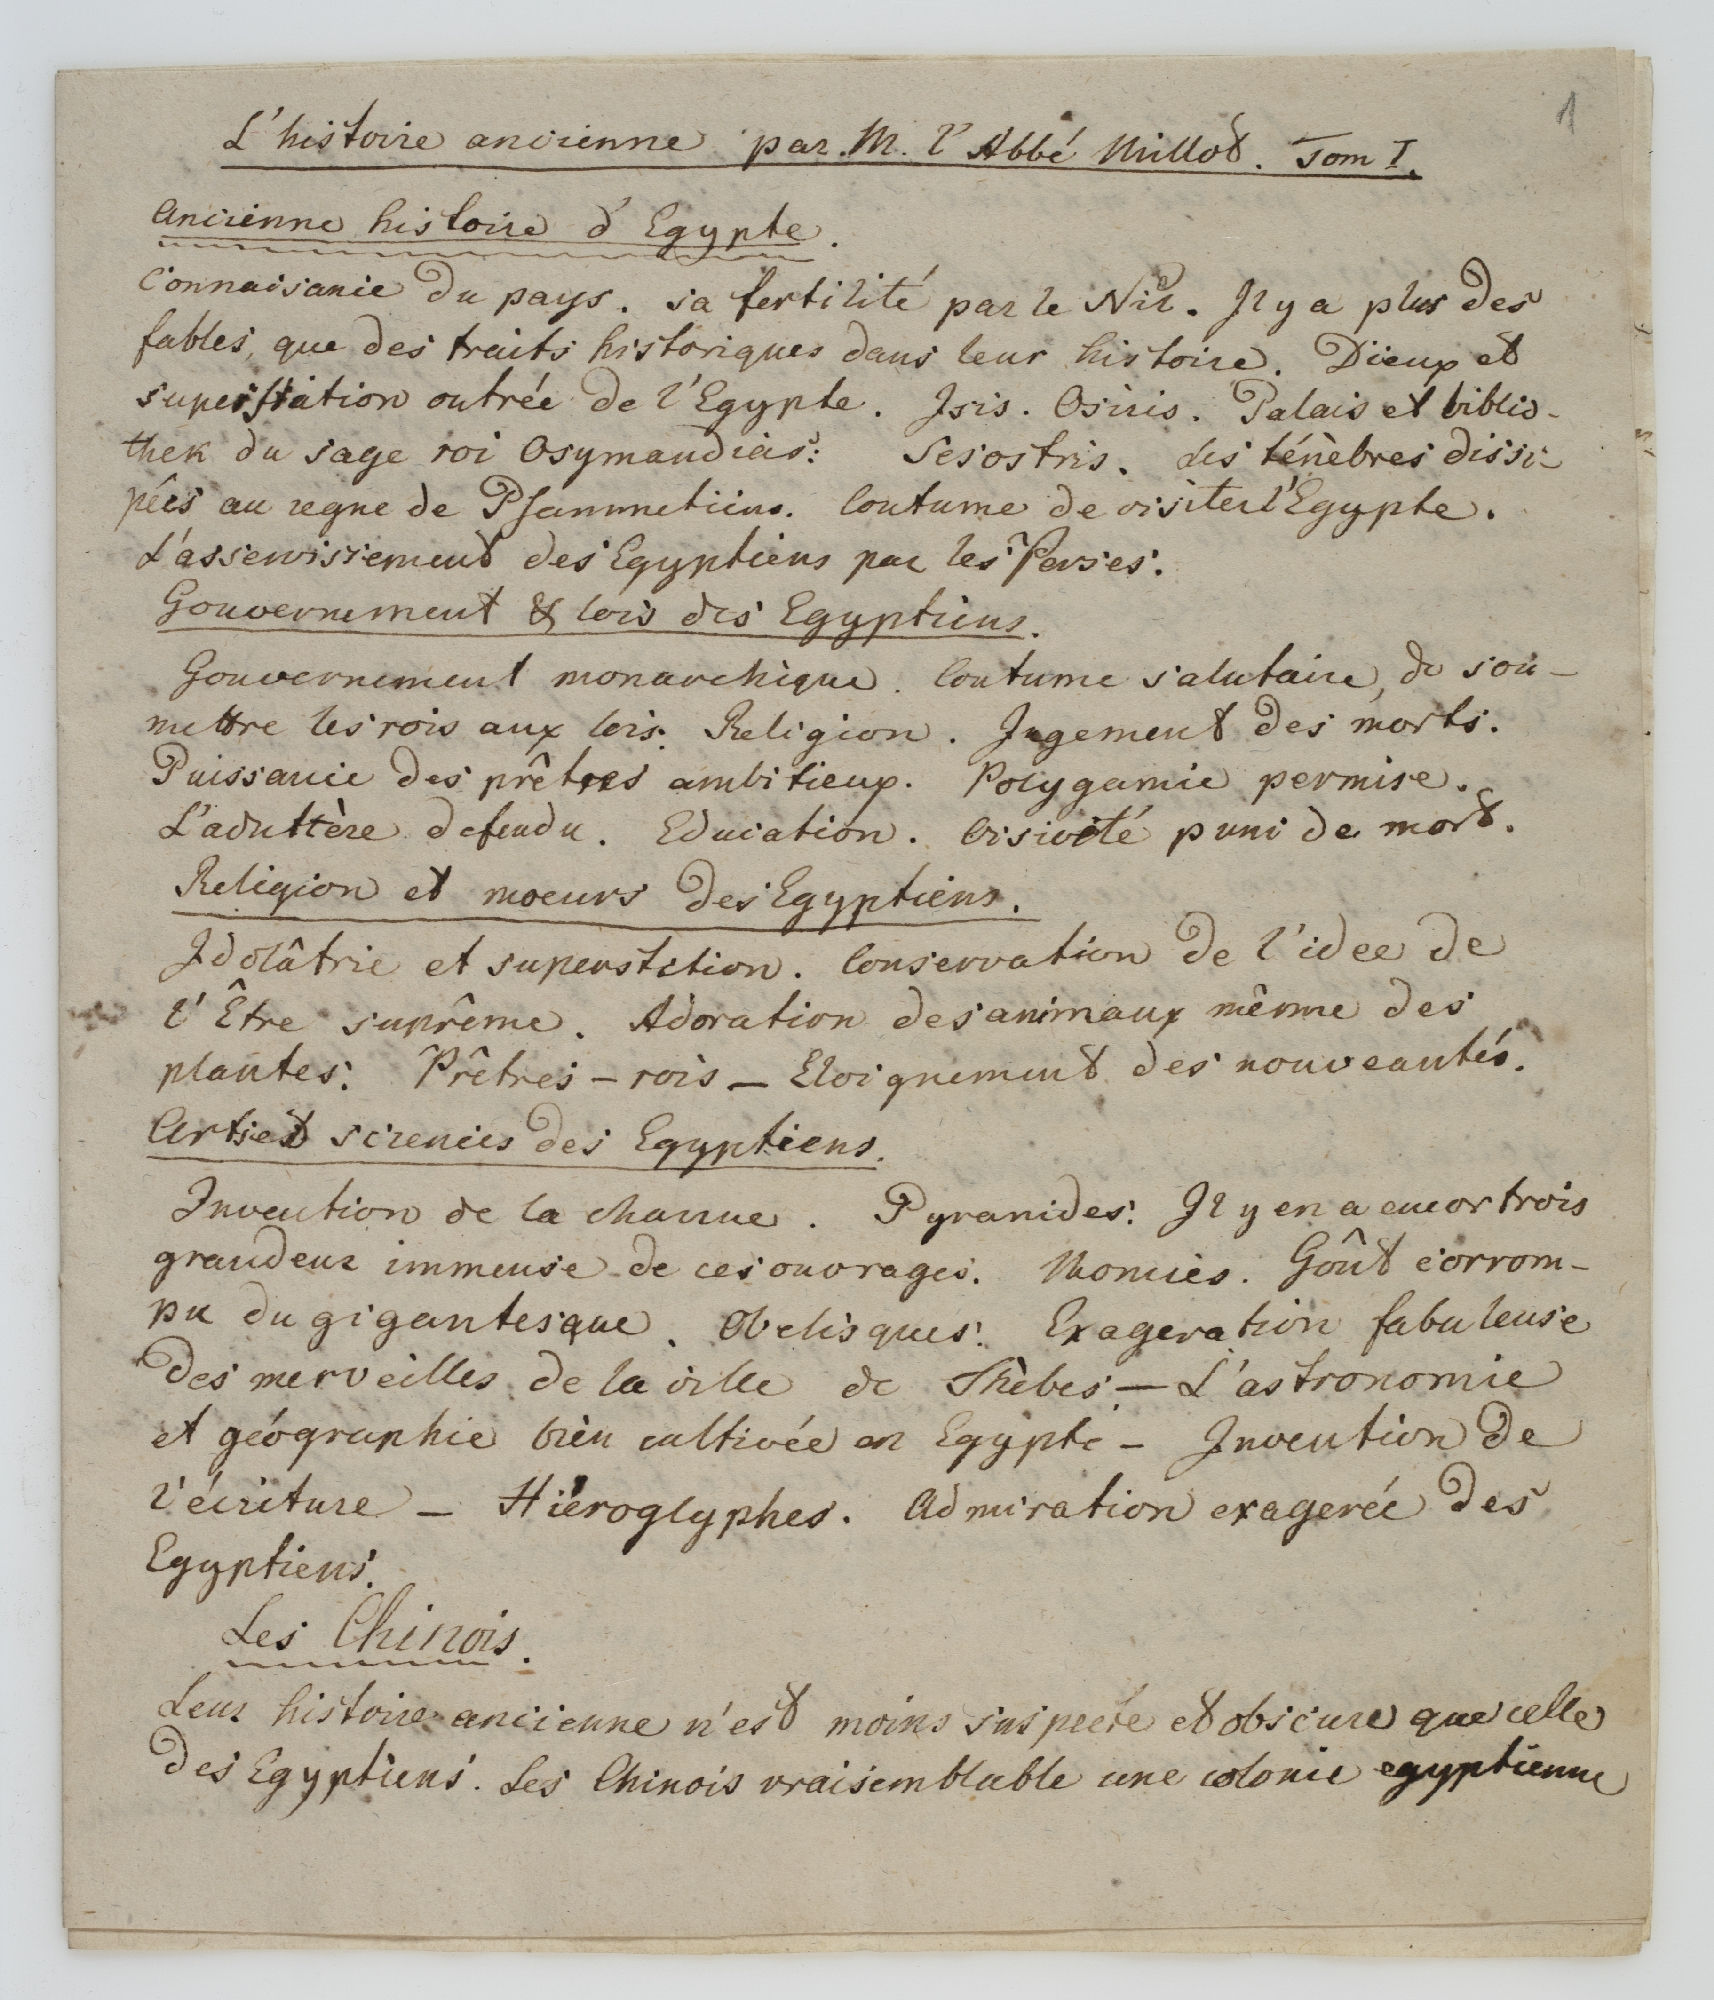 1
L'histoire ancienne par M. l'Abbé Millot. Tom I.
Ancienne histoire d'Egypte.
Connaisance du pays. sa fertilité par le Nil. Il y a plus des
fables, que des traits historiques dans leur histoire. Dieux et
superstiation outrée de l'Egypte. Isis. Osiris. Palais et biblio-
thek du sage roi Osymandias: Sesostris. Les ténèbres dissi-
pées au regne de Psammetiens. Coutume de visiter l'Egypte.
L'asservissement des Egyptiens par les Perses.
Gouvernement & lois des Egyptiens.
Gouvernement monarchique. Coutume salutaire, de sou-
mettre les rois aux lois. Religion. Jugement des morts.
Puissance des prêtres ambitieux. Polygamie permise.
L'adultère defendu. Education. Oisivité puni de mort.
Religion et moeurs des Egyptiens.
Idolâtrie et superstition. Conservation de l'idee de
l'Être suprême. Adoration des animaux même des
plantes. Prêtres - rois - Eloignement des nouveautés.
Arts et sciences des Egyptiens.
Invention de la charrue. Pyramides. Il y en a encor trois
grandeur immense de ces ouvrages. Momies. Goût corrom-
pu du gigantesque. Obelisques. Exageration fabuleuse
des merveilles de la ville de Thèbes - L'astronomie
et géographie bien cultivée en Egypte - Invention de
l'écriture - Hieroglyphes. Admiration exagerée des
Egyptiens.
Les Chinois.
Leur histoire ancienne n'est moins suspecte et obscure que celle
des Egyptiens. Les Chinois vraisemblable une colonie egyptienne